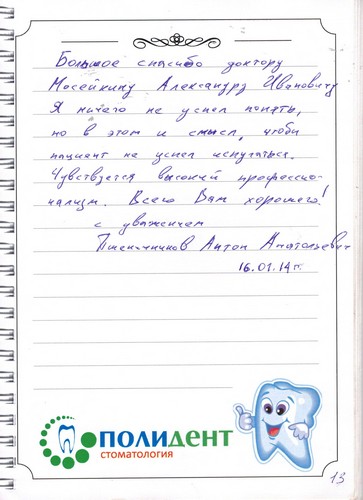 Большое спасибо доктору
Мосейкину Александру Ивановичу
Я ничего не успел понять,
но в этом и смысл, чтобы
пациент не успел испугаться.
Чувствуется высокий профессио-
нализм. Всего Вам хорошего!
с уважением
Пшеничников Антон Анатольевич
16.01.14 г.
ПОЛИДЕНТ
СТОМАТОЛОГИЯ
13